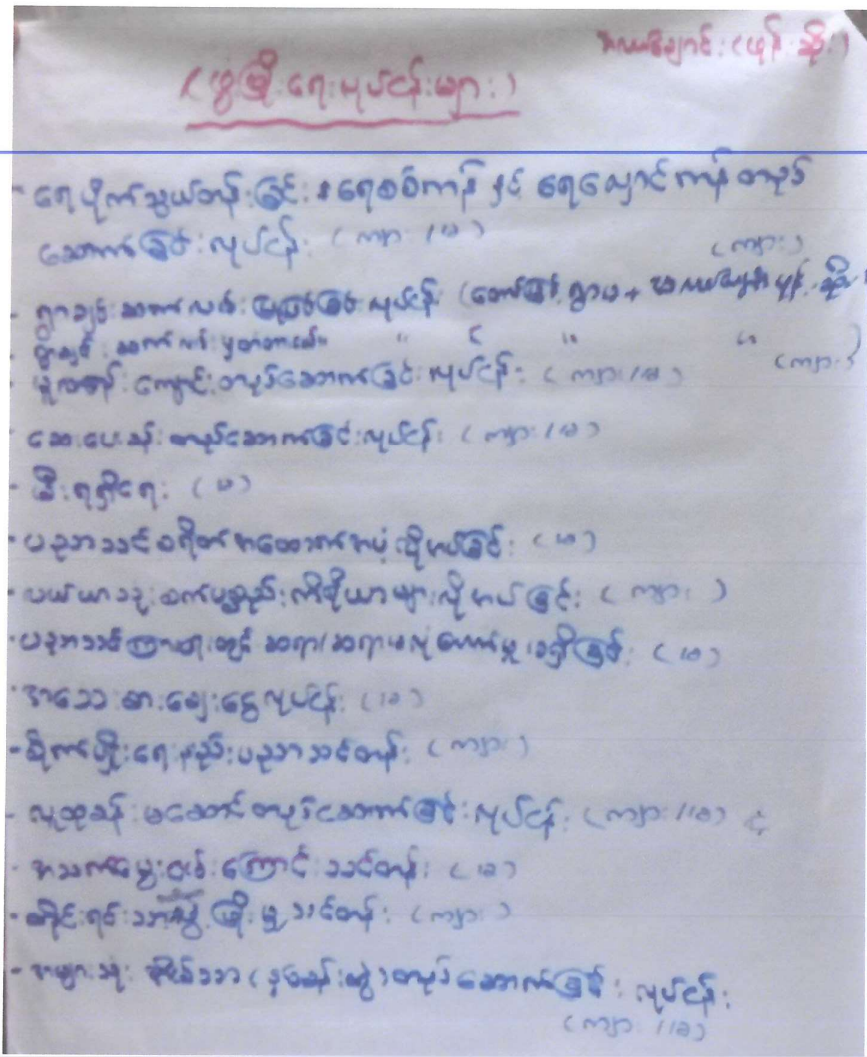 အလယ်ချောင်း (ဖုန်းဆိုး)
(ဖွံ့ဖြိုးရေးလုပ်ငန်းများ)
- ရေပိုက်သွယ်တန်းခြင်း၊ ရေစစ်ကန် နှင့် ရေလှောင်ကန် တည်
ဆောက်ခြင်းလုပ်ငန်း (ကျား/မ)
(ကျား)
- ရွာချင်းဆက်လမ်းပြုပြင်ခြင်းလုပ်ငန်း
- ရွာချင်းဆက်လမ်း " " " (ကျား)
- မူလတန်းကျောင်းတည်ဆောက်ခြင်းလုပ်ငန်း (ကျား/မ)
- ဆေးပေးခန်းတည်ဆောက်ခြင်းလုပ်ငန်း (ကျား/မ)
- မီးရရှိရေး (မ)
- ပညာသင်စရိတ်အထောက်အပံ့လိုအပ်ခြင်း (မ)
- လယ်ယာသုံးစက်ပစ္စည်းကိရိယာများလိုအပ်ခြင်း (ကျား)
- ပညာသင်ကြားရာတွင် ဆရာ/ဆရာမလုံလောက်မှုမရှိခြင်း (မ)
- အသေးစားချေးငွေလုပ်ငန်း (မ)
- စိုက်ပျိုးရေးနည်းပညာသင်တန်း (ကျား)
- လူထုခန်းမဆောင်တည်ဆောက်ခြင်းလုပ်ငန်း (ကျား/မ)
- အသက်မွေးဝမ်းကြောင်းသင်တန်း (မ)
- တိုင်းရင်းသားဖွံ့ဖြိုးမှုသင်တန်း (ကျား)
- အများသုံးအိမ်သာ တည်ဆောက်ခြင်းလုပ်ငန်း
(ကျား/မ)